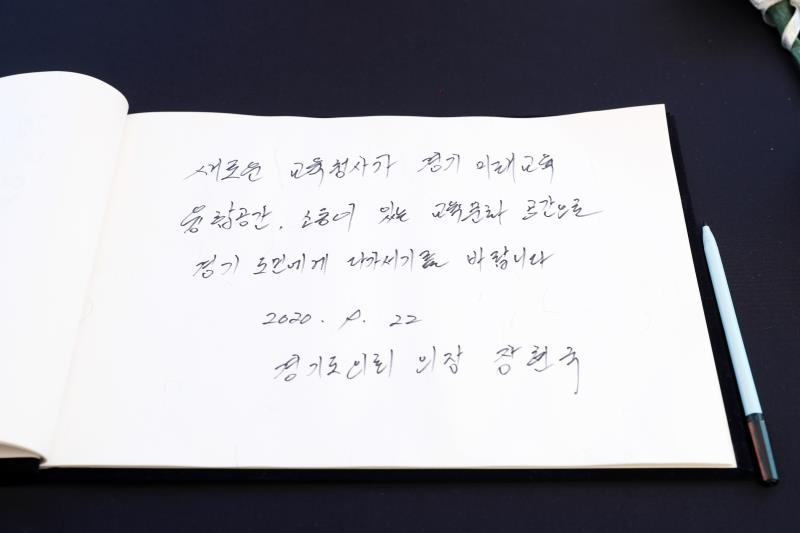 새로운 교육청사가 경기 미래교육
융합공간, 소통이 있는 교육문화 공간으로
경기 도민에게 다가서기를 바랍니다
2020. 9. 22
경기도의회 의장 장현국